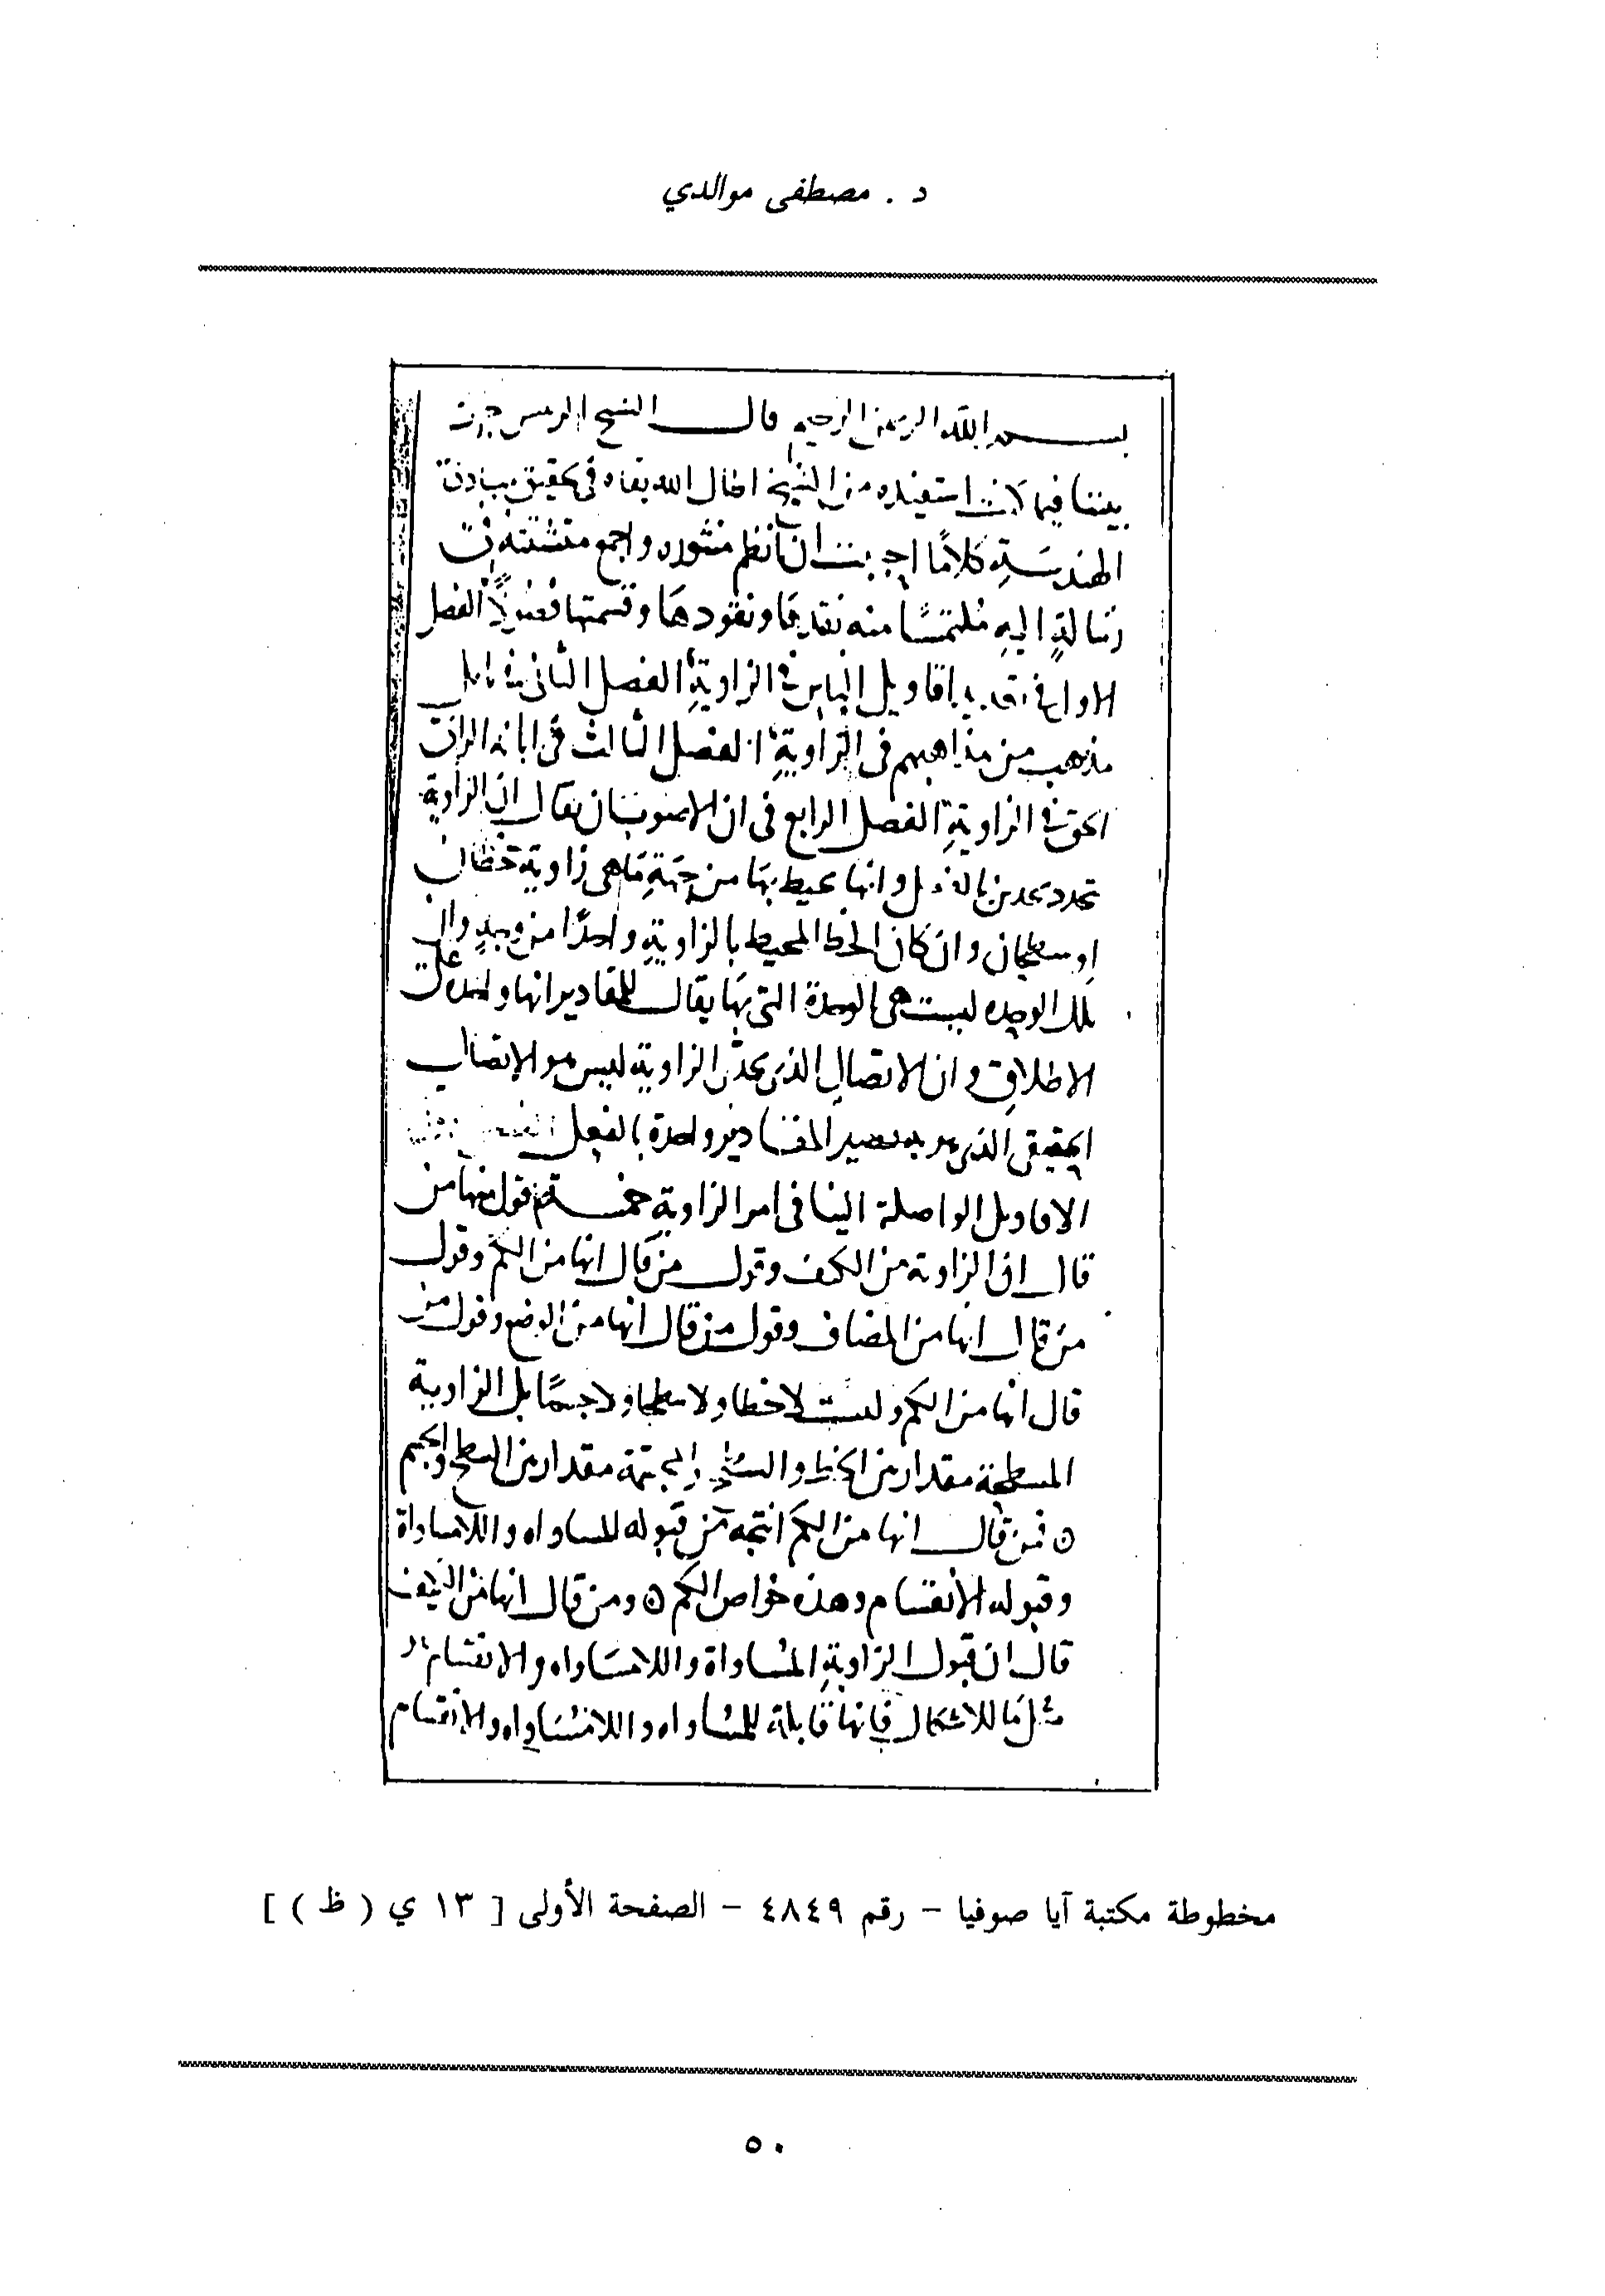 د . مصطفى موالدي
بسم الله الرحمن الرحيم قال الشيخ الرئيس جرت
بيننا فيما كنت استفيده من الشيخ اطال الله بقاه فى تحقيق مبادئ
الهندسة كلامًا احببت ان انظم منثوره واجمع متشتته فى
رسالة اليه ملتمسًا منه نقدها ونقودها وقسمتها فصولًا الفصل
الاول فى تعديد اقاويل الناس فى الزاوية الفصل الثانى فى
مذهب من مذاهبهم فى الزاوية الفصل الثالث فى ابانة الراى
الحق فى الزاوية الفصل الرابع فى ان الاصوب ان يقال ان الزاوية
تحدد بحدين بالفعل وانها يحيط بها من جهة ما هى زاوية خطان
او سطحان وان كان الخط المحيط بالزاوية واحدًا من وجه وان
تلك الوحده ليست هى الوحدة التى بها يقال للمقادير انها واحده على
الاطلاق وان الاتصال الذى يحدث الزاوية ليس هو الاتصال
الحقيقى الذى هو به تصير المقادير واحدة بالفعل
الاقاويل الواصلة الينا فى امر الزاوية خمسة قول منها من
قال ان الزاوية من الكيف وقول من قال انها من الكم وقول
من قال انها من المضاف وقول من قال انها من الوضع وقول من
قال انها من الكم وليست لا خطا ولا سطحا ولا جسمًا بل الزاوية
المسطحة مقدار بين الخط والسطح والمجسمة مقدار بين السطح والجسم
ه فمن قال انها من الكم انتجه من قبوله للمساواه واللامساواة
وقبوله الانقسام وهذه خواص الكم ه ومن قال انها من الكيف
قال ان قبول الزاوية المساواة واللامساواه والانقسام
مثل ما للاشكال فانها قابلة للمساواه واللامساواه والانقسام
مخطوطة مكتبة آيا صوفيا – رقم ٤٨٤٩ – الصفحة الأولى [ ١٣ ي ( ظ ) ]
٥٠